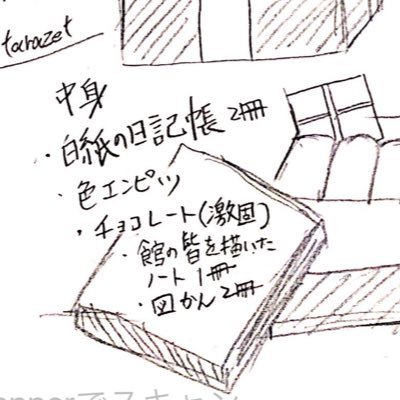 tarazet
中身
・白紙の日記帳 2冊
・色エンピツ
・チョコレート(激固)
・館の皆を描いた
ノート 1冊
・図かん 2冊
でスキャン